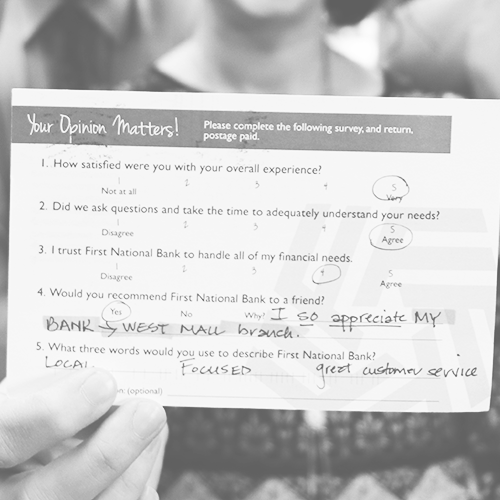 Your Opinion Matters!
Please complete the following survey, and return,
postage paid.
1. How satisfied were you with your overall experience?
1 2 3 4 5
Not at all Very
2. Did we ask questions and take the time to adequately understand your needs?
1 2 3 4 5
Disagree Agree
3. I trust First National Bank to handle all of my financial needs.
1 2 3 4 5
Disagree Agree
4. Would you recommend First National Bank to a friend?
Yes No Why? I so appreciate MY
BANK → WEST MALL branch.
5. What three words would you use to describe First National Bank?
LOCAL FOCUSED great customer service
(optional)